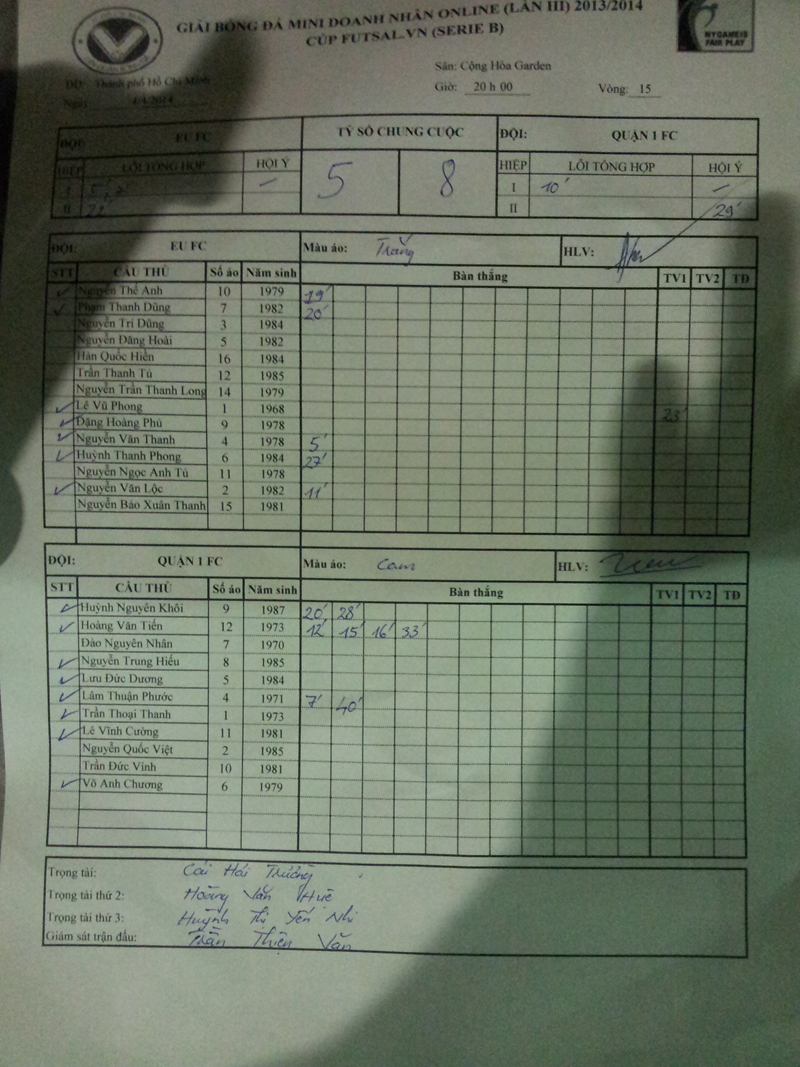 GIẢI BÓNG ĐÁ MINI DOANH NHÂN ONLINE (LẦN III) 2013/2014
CÚP FUTSAL.VN (SERIE B)
MYGAME IS
FAIR PLAY
Sân: Cộng Hòa Garden
Thành phố Hồ Chí Minh
Giờ: 20 h 00 Vòng: 15
Ngày
ĐỘI: EU FC TỶ SỐ CHUNG CUỘC ĐỘI: QUẬN 1 FC
HIỆP LỖI TỔNG HỢP HỘI Ý 5 8 HIỆP LỖI TỔNG HỢP HỘI Ý
I – I 10' –
II II 29'
ĐỘI: EU FC Màu áo: Trắng HLV:
STT CẦU THỦ Số áo Năm sinh Bàn thắng TV1 TV2 TĐ
Nguyễn Thế Anh 10 1979 19'
Phạm Thanh Dũng 7 1982 20'
Nguyễn Trí Dũng 3 1984
Nguyễn Đăng Hoài 5 1982
Hàn Quốc Hiển 16 1984
Trần Thanh Tú 12 1985
Nguyễn Trần Thanh Long 14 1979
Lê Vũ Phong 1 1968 23'
Đặng Hoàng Phú 9 1978
Nguyễn Văn Thanh 4 1978 5'
Huỳnh Thanh Phong 6 1984 27'
Nguyễn Ngọc Anh Tú 11 1978
Nguyễn Văn Lộc 2 1982 11'
Nguyễn Bảo Xuân Thanh 15 1981
ĐỘI: QUẬN 1 FC Màu áo: Cam HLV:
STT CẦU THỦ Số áo Năm sinh Bàn thắng TV1 TV2 TĐ
Huỳnh Nguyên Khôi 9 1987 20' 28'
Hoàng Văn Tiến 12 1973 12' 15' 16' 33'
Đào Nguyên Nhân 7 1970
Nguyễn Trung Hiếu 8 1985
Lưu Đức Dương 5 1984
Lâm Thuận Phước 4 1971 7' 40'
Trần Thoại Thanh 1 1973
Lê Vĩnh Cường 11 1981
Nguyễn Quốc Việt 2 1985
Trần Đức Vinh 10 1981
Võ Anh Chương 6 1979
Trọng tài: Cái Hải Trường
Trọng tài thứ 2: Hoàng Văn Huê
Trọng tài thứ 3: Huỳnh Thị Yến Nhi
Giám sát trận đấu: Trần Thiên Văn